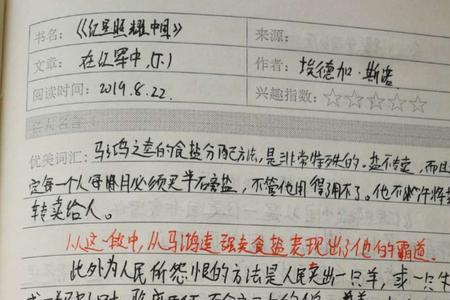 书名：《红星照耀中国》 来源：
文章：在红军中（5.1） 作者：埃德加·斯诺
阅读时间：2019.8.22. 兴趣指数：☆☆☆☆☆
优美词汇：马鸿逵的食盐分配方法，是非常特殊的。盐不专卖，而且
定每一个人每月必须买半磅盐，不管他用得了用不了。他不准许将盐
转卖给人。
1.从这一做中，从马鸿逵强卖食盐表现出了他的霸道。
此外为人民所怨恨的方法是人民卖出一只羊，或一只牛